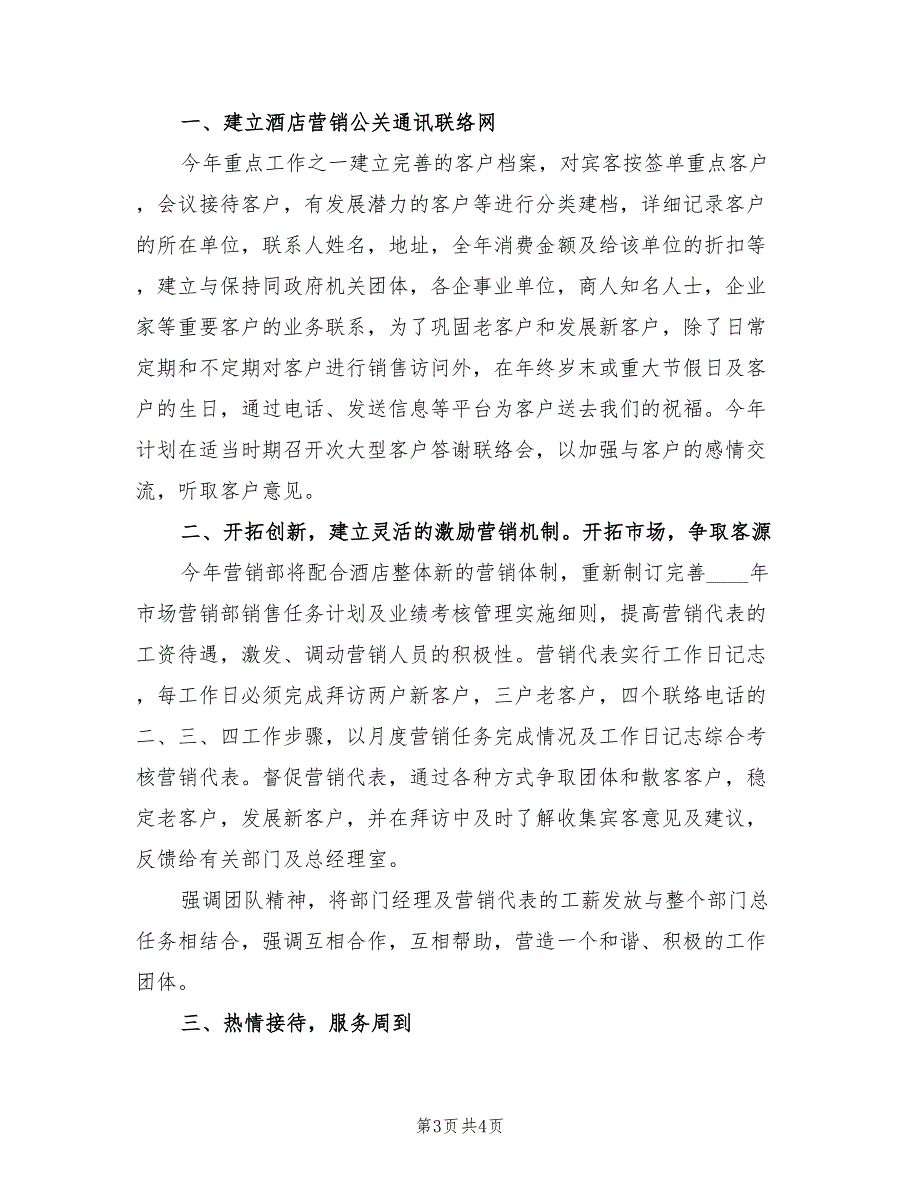 一、建立酒店营销公关通讯联络网
今年重点工作之一建立完善的客户档案，对宾客按签单重点客户
，会议接待客户，有发展潜力的客户等进行分类建档，详细记录客户
的所在单位，联系人姓名，地址，全年消费金额及给该单位的折扣等
，建立与保持同政府机关团体，各企事业单位，商人知名人士，企业
家等重要客户的业务联系，为了巩固老客户和发展新客户，除了日常
定期和不定期对客户进行销售访问外，在年终岁末或重大节假日及客
户的生日，通过电话、发送信息等平台为客户送去我们的祝福。今年
计划在适当时期召开次大型客户答谢联络会，以加强与客户的感情交
流，听取客户意见。
二、开拓创新，建立灵活的激励营销机制。开拓市场，争取客源
今年营销部将配合酒店整体新的营销体制，重新制订完善____年
市场营销部销售任务计划及业绩考核管理实施细则，提高营销代表的
工资待遇，激发、调动营销人员的积极性。营销代表实行工作日记志
，每工作日必须完成拜访两户新客户，三户老客户，四个联络电话的
二、三、四工作步骤，以月度营销任务完成情况及工作日记志综合考
核营销代表。督促营销代表，通过各种方式争取团体和散客客户，稳
定老客户，发展新客户，并在拜访中及时了解收集宾客意见及建议，
反馈给有关部门及总经理室。
强调团队精神，将部门经理及营销代表的工薪发放与整个部门总
任务相结合，强调互相合作，互相帮助，营造一个和谐、积极的工作
团体。
三、热情接待，服务周到
第3页共4页